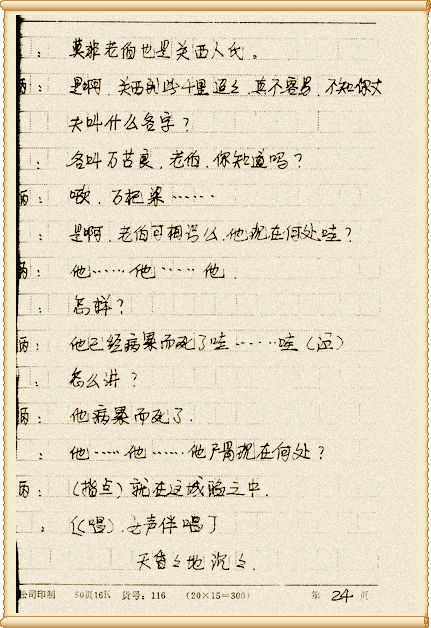 ：莫非老伯也是关西人氏。
丙：是啊，关西到此千里迢々，真不容易，不知你丈
夫叫什么名字？
：名叫万苦良，老伯，你知道吗？
丙：哦，万杞梁……
：是啊，老伯可相识么，他现在何处哇？
丙：他……他……他．
：怎样？
丙：他已经病累而死了哇……哇（泣）
：怎么讲？
丙：他病累而死了．
：他……他……他尸骨现在何处？
丙：（指点）就在这城脸之中．
：（唱）．女声伴唱了
天昏々地沉々．
公司印制 50页16K 货号：116 （20×15=300） 第 24 页